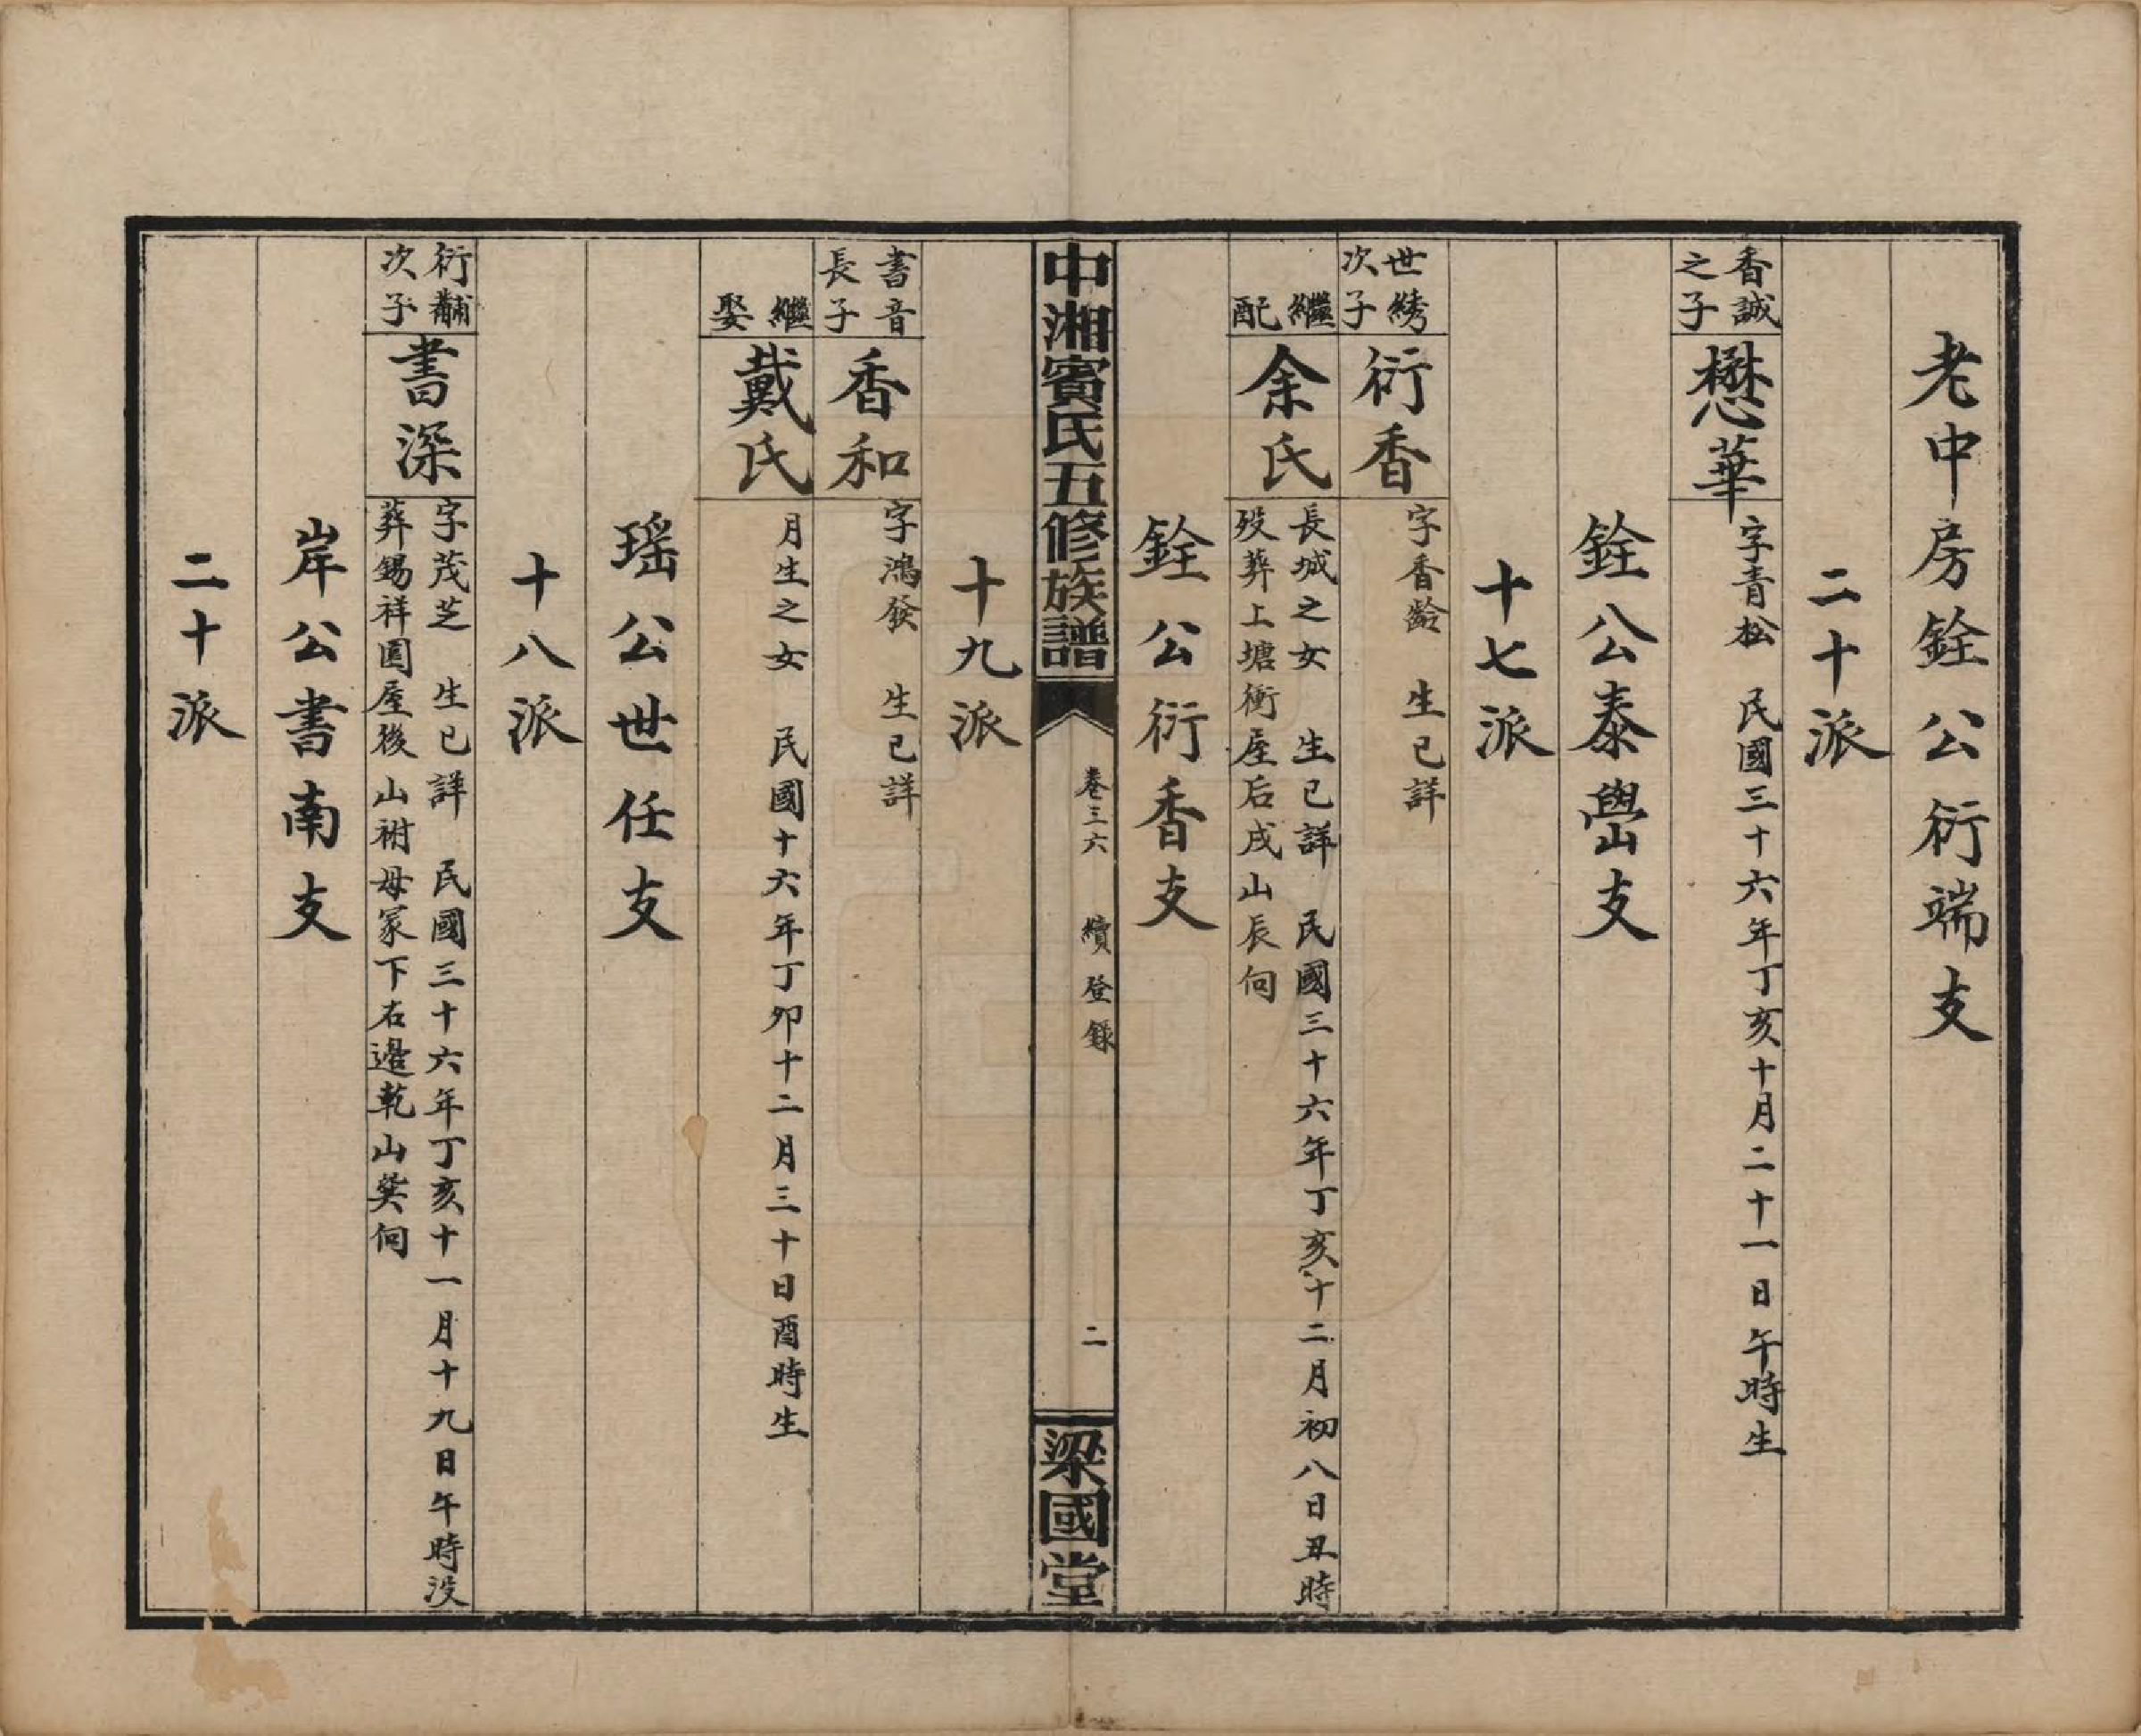 老中房銓公衍端支
二十派
香誠之子
懋華
字青松 民國三十六年丁亥十月二十一日午時生
銓公泰壆支
十七派
世綉次子
衍香
字香齡 生已詳
繼配
余氏
長城之女 生已詳 民國三十六年丁亥十二月初八日丑時
歿葬上塘衝屋后戌山辰向
銓公衍香支
中湘賓氏五修族譜
卷三六 續登錄
二
梁國堂
十九派
書音長子
香和
字鴻發 生已詳
繼娶
戴氏
月生之女 民國十六年丁卯十二月三十日酉時生
瑶公世任支
十八派
衍黼次子
書深
字茂芝 生已詳 民國三十六年丁亥十一月十九日午時没
葬錫祥圓屋後山祔母冢下右邊乾山巽向
岸公書南支
二十派